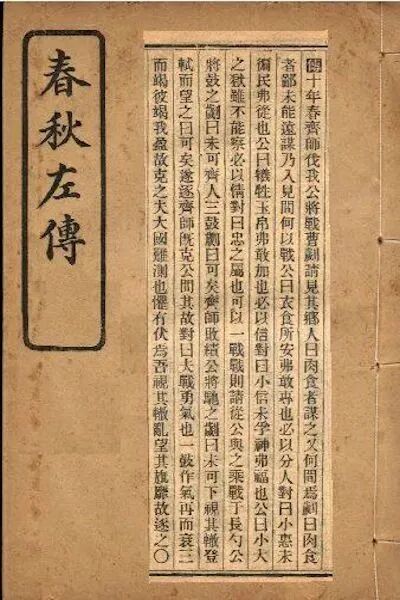 春秋左傳
傳十年春齊師伐我公將戰曹劌請見其鄉人曰肉食者謀之又何間焉劌曰肉食
者鄙未能遠謀乃入見問何以戰公曰衣食所安弗敢專也必以分人對曰小惠未
徧民弗從也公曰犧牲玉帛弗敢加也必以信對曰小信未孚神弗福也公曰小大
之獄雖不能察必以情對曰忠之屬也可以一戰戰則請從公與之乘戰于長勺公
將鼓之劌曰未可齊人三鼓劌曰可矣齊師敗績公將馳之劌曰未可下視其轍登
軾而望之曰可矣遂逐齊師既克公問其故對曰夫戰勇氣也一鼓作氣再而衰三
而竭彼竭我盈故克之夫大國難測也懼有伏焉吾視其轍亂望其旗靡故逐之○